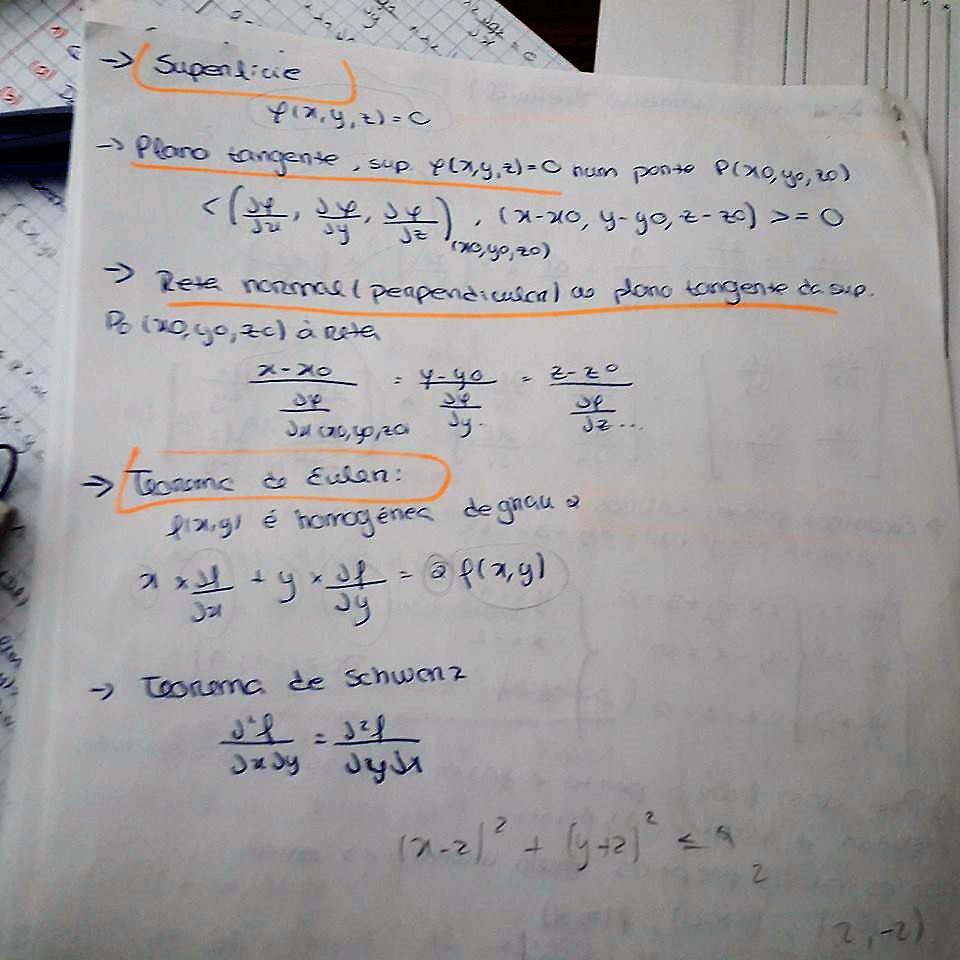 → Superficie
φ(x,y,z)=C
→ Plano tangente, sup. φ(x,y,z)=0 num ponto P(x0,y0,z0)
<(∂φ/∂x, ∂φ/∂y, ∂φ/∂z)(x0,y0,z0), (x-x0, y-y0, z-z0)>=0
→ Reta normal (perpendicular) ao plano tangente da sup.
P0 (x0,y0,z0) à reta
(x-x0)/(∂φ/∂x (x0,y0,z0)) = (y-y0)/(∂φ/∂y..) = (z-z0)/(∂φ/∂z...)
→ Teorema de Euler:
f(x,y) é homogénea de grau a
x × ∂f/∂x + y × ∂f/∂y = a f(x,y)
→ Teorema de Schwarz
∂²f/∂x∂y = ∂²f/∂y∂x
(x-2)² + (y+2)² ≤ 4
2
(2,-2)